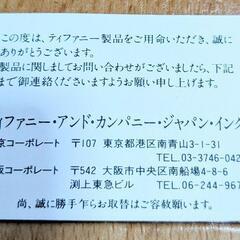 この度は、ティファニー製品をご用命いただき、誠に
ありがとうございます。
製品に関しましてお問い合わせがございましたら、下記
まで御連絡くださいますようお願い申し上げます。
ィファニー・アンド・カンパニー・ジャパン・インク
京コーポレート 〒107 東京都港区南青山3-1-31
TEL.03-3746-042
阪コーポレート 〒542 大阪市中央区南船場4-8-
渕上東急ビル TEL.06-244-967
尚、誠に勝手乍らお取替はご容赦願います。